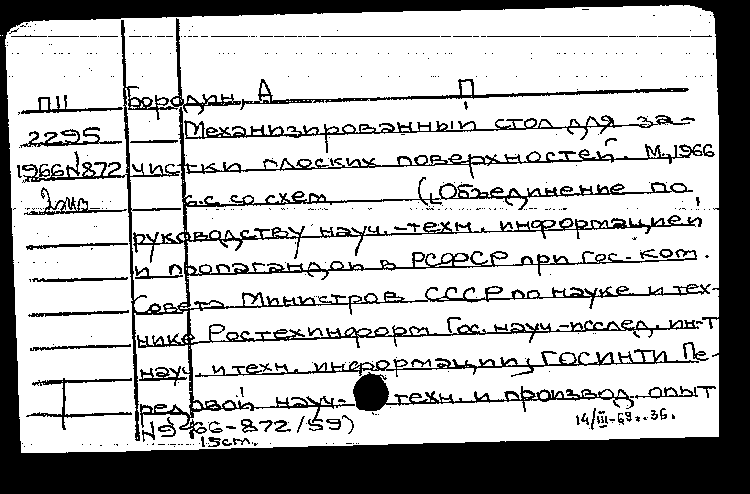 П11 Бородин, А П
2295 Механизированный стол для за-
1966№872 чистки плоских поверхностей. М, 1966
2экз 6.с. со схем. (Объединение по
руководству науч.-техн. информацией
и пропагандой в РСФСР при Гос. ком.
Совета Министров СССР по науке и тех-
нике Ростехинформ. Гос. науч.-исслед. ин-т
науч. и техн. информации; ГОСИНТИ Пе-
редовой науч.- техн. и производ. опыт
№9-66-872/59)
15см.
14/III-69..